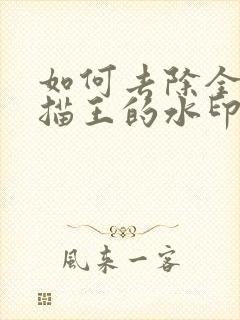 如何去除全
描王的水印
風来一客